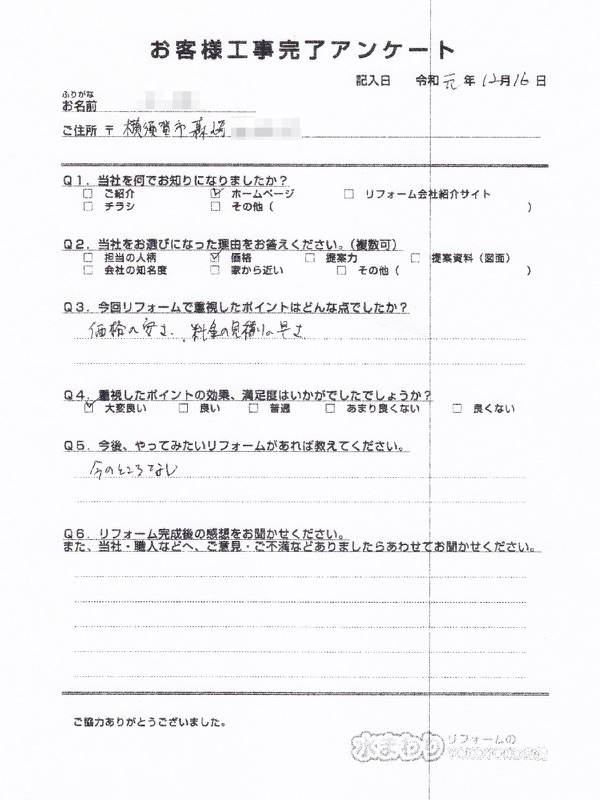 お客様工事完了アンケート
記入日 令和 元 年 12月 16 日
ふりがな
お名前
ご住所 〒 横須賀市森崎
Q1. 当社を何でお知りになりましたか?
□ ご紹介 ☑ ホームページ □ リフォーム会社紹介サイト
□ チラシ □ その他( )
Q2. 当社をお選びになった理由をお答えください。(複数可)
□ 担当の人柄 ☑ 価格 □ 提案力 □ 提案資料(図面)
□ 会社の知名度 □ 家から近い □ その他( )
Q3. 今回リフォームで重視したポイントはどんな点でしたか?
価格の安さ、料金の見積りの早さ
Q4. 重視したポイントの効果、満足度はいかがでしたでしょうか?
☑ 大変良い □ 良い □ 普通 □ あまり良くない □ 良くない
Q5. 今後、やってみたいリフォームがあれば教えてください。
今のところなし
Q6. リフォーム完成後の感想をお聞かせください。
また、当社・職人などへ、ご意見・ご不満などありましたらあわせてお聞かせください。
ご協力ありがとうございました。
水まわり リフォームの